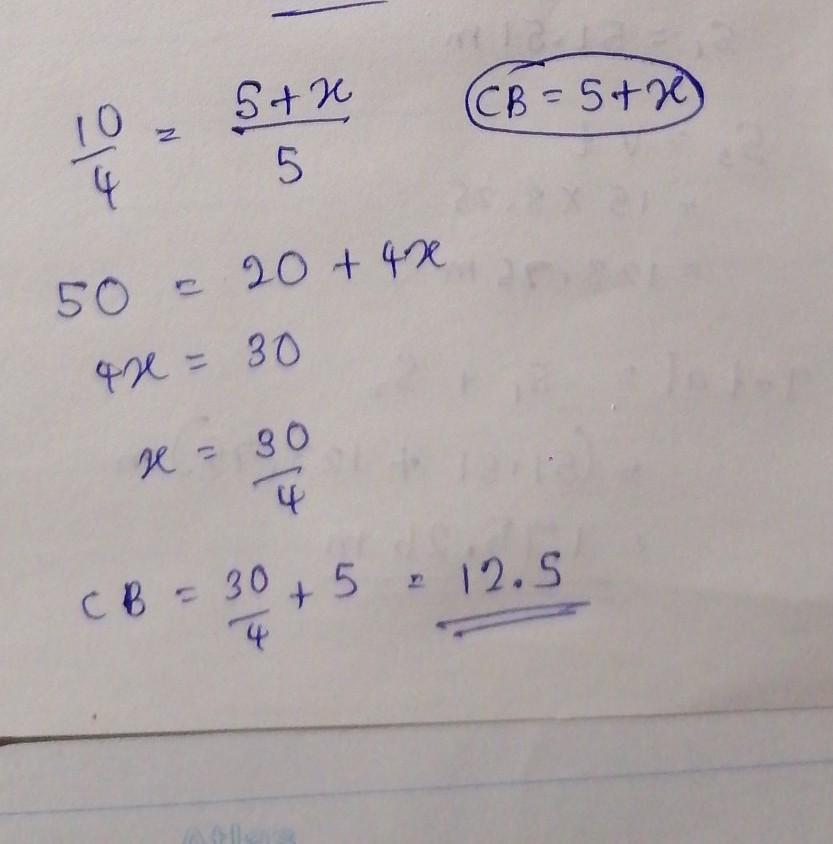 10/4 = (5+x)/5    CB = 5+x
50 = 20 + 4x
4x = 30
x = 30/4
CB = 30/4 + 5 = 12.5